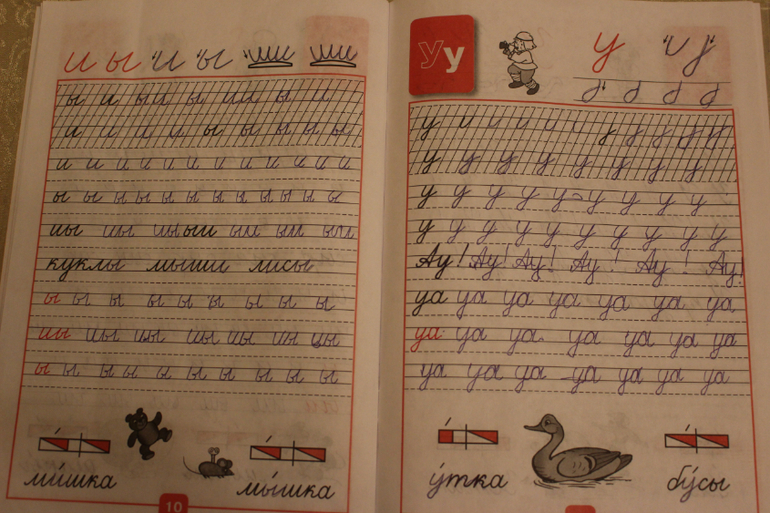 и ы и ы
ы и ыи ы ии ы и
и и и и ы ы ы ы ы
и и и и и и и и и и и и
ы ы ы ы ы ы ы ы ы ы ы
иы иы иы ыи ыи ыи ыи
куклы мыши лисы
ы ы ы ы ы ы ы ы ы
иы иы иы иы иы иы цы
ы ы ы ы ы ы ы ы ы
ми́шка мы́шка
10
Уу у
у и и и и и у у у у у
у у у у у у у у
у у у у у у у у у
у у у у у у у у у у
Ау! Ау! Ау! Ау! Ау! Ау!
уа уа уа уа уа уа уа
уа уа уа уа уа уа уа
уа уа уа уа уа уа уа
у́тка бу́сы